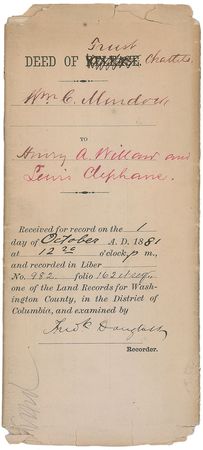 Trust
DEED OF RELEASE. Chattels.
Wm C. Murdock
TO
Henry A. Willard and
Lewis Clephane.
Received for record on the 1
day of October A. D. 1881
at 12 30 o'clock p m.,
and recorded in Liber
No. 982 folio 162 et seq.,
one of the Land Records for Wash-
ington County, in the District of
Columbia, and examined by
Fredk Douglass
Recorder.